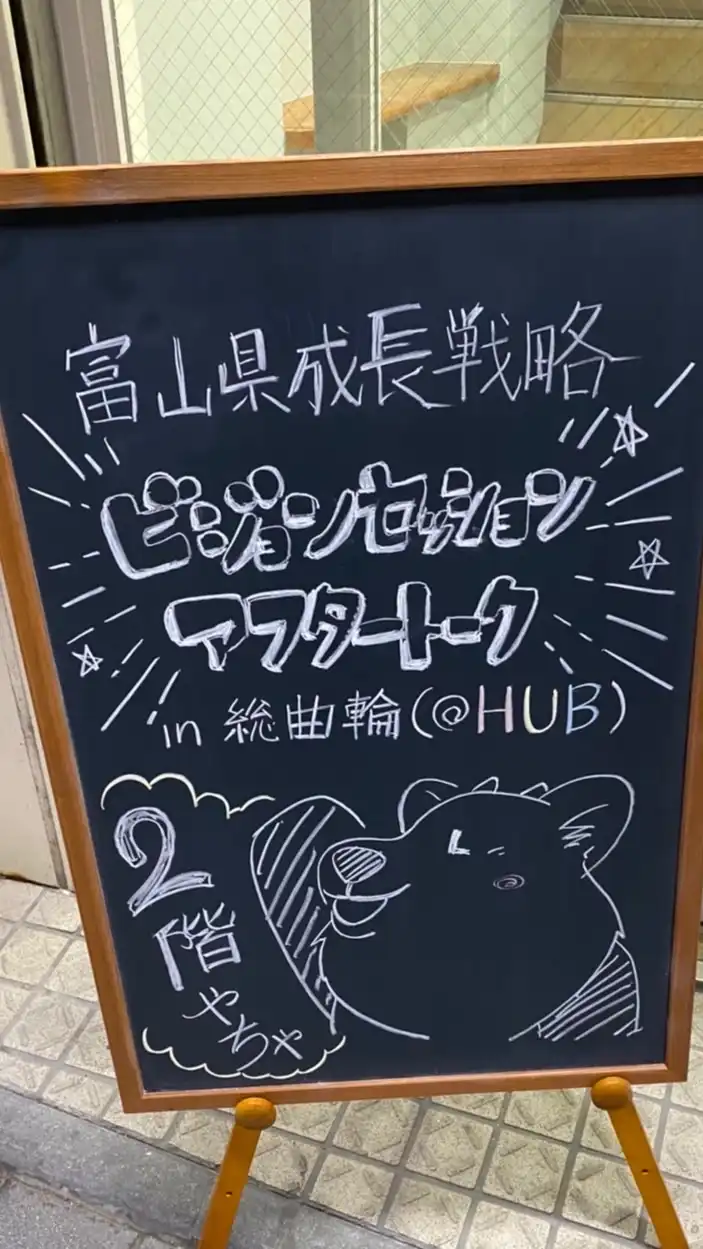 富山県成長戦略
ビジョンセッション
アフタートーク
in 総曲輪(@HUB)
2
階
やちゃ